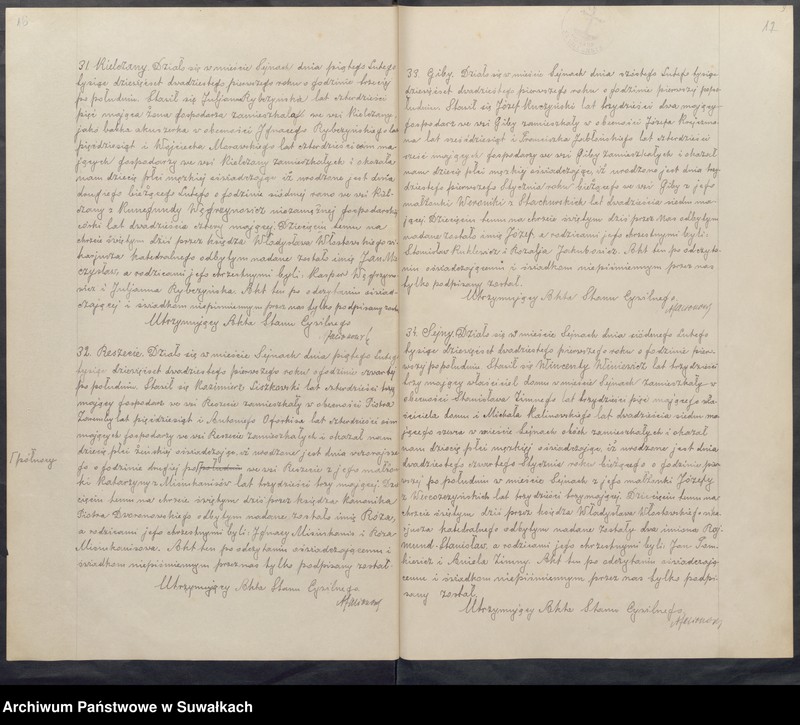 16
31. Kielczany. Działo się w mieście Sejnach dnia piątego Lutego
tysiąc dziewięćset dwudziestego pierwszego roku o godzinie trzeciej
po południu. Stawił się Juljanna Rybczyńska lat czterdzieści
pięć mająca żona gospodarza zamieszkała we wsi Kielczany,
jako babka akuszerka w obecności Ignacego Rybczyńskiego lat
pięćdziesiąt i Wojciecha Morawskiego lat czterdzieści osm ma-
jących gospodarzy we wsi Kielczany zamieszkałych i okazała
nam dziecię płci męzkiej oświadczając iż urodzone jest dnia
drugiego bieżącego Lutego o godzinie siódmej rano we wsi Kiel-
czany z Kunegundy Węgrzynowicz niezamężnej gospodarskiej
córki lat dwadzieścia cztery mającej. Dziecięciu temu na
chrzcie świętym dziś przez księdza Władysława Włostowskiego wi-
karjusza katedralnego odbytym nadane zostało imię Jan Ma-
czysław, a rodzicami jego chrzestnymi byli: Kasper Węgrzyno-
wicz i Juljanna Rybczyńska. Akt ten po odczytaniu oświad-
czającej i świadkom niepiśmiennym przez nas tylko podpisany został
Utrzymujący Akta Stanu Cywilnego
32. Reszecie. Działo się w mieście Sejnach dnia piątego Lutego
tysiąc dziewięćset dwudziestego pierwszego roku o godzinie czwartej
po południu. Stawił się Kazimierz Liszkowski lat czterdzieści trzy
mający gospodarz we wsi Reszecie zamieszkały w obecności Piotra
lat pięćdziesiąt i Antoniego lat czterdzieści osm
mających gospodarzy we wsi Reszecie zamieszkałych i okazał nam
dziecię płci żeńskiej oświadczając iż urodzone jest dnia wczorajsze-
go o godzinie drugiej po południu we wsi Reszecie z jego małżon-
ki Katarzyny z Misiukaniów lat trzydzieści trzy mającej. Dzie-
cięciu temu na chrzcie świętym dziś przez księdza kanonika
Piotra Dworanowskiego odbytym nadane zostało imię Róża,
a rodzicami jego chrzestnymi byli: Ignacy Misiukanis i Róża
Misiukanisowa. Akt ten po odczytaniu oświadczającemu i
świadkom niepiśmiennym przez nas tylko podpisany został
Utrzymujący Akta Stanu Cywilnego
północy
17
33. Giby. Działo się w mieście Sejnach dnia szóstego Lutego tysiąc
dziewięćset dwudziestego pierwszego roku o godzinie pierwszej popo-
łudniu. Stawił się Józef Kuczyński lat trzydzieści dwa mający
gospodarz we wsi Giby zamieszkały w obecności Józefa
lat sześćdziesiąt i Franciszka Jabłońskiego lat czterdzieści
sześć mających gospodarzy we wsi Giby zamieszkałych i okazał
nam dziecię płci męzkiej oświadczając iż urodzone jest dnia trzy-
dziestego pierwszego Stycznia roku bieżącego we wsi Giby z jego
małżonki Weroniki z Stachurskich lat dwadzieścia siedm ma-
jącej. Dziecięciu temu na chrzcie świętym dziś przez Nas odbytym
nadane zostało imię Józef a rodzicami jego chrzestnymi byli:
Stanisław Kuklewicz i Rozalja Jakubowicz. Akt ten po odczyta-
niu oświadczającemu i świadkom niepiśmiennym przez nas
tylko podpisany został.
Utrzymujący Akta Stanu Cywilnego,
34. Sejny. Działo się w mieście Sejnach dnia siódmego Lutego
tysiąc dziewięćset dwudziestego pierwszego roku o godzinie pier-
wszej popołudniu. Stawił się Wincenty Klimowicz lat trzydzieści
trzy mający właściciel domu w mieście Sejnach zamieszkały w
obecności Stanisława Zimnego lat trzydzieści pięć mającego wła-
ściciela domu i Michała Kalinowskiego lat dwadzieścia siedm ma-
jącego szewca w mieście Sejnach obóch zamieszkałych i okazał
nam dziecię płci męzkiej oświadczając, iż urodzone jest dnia
dwudziestego czwartego Stycznia roku bieżącego o godzinie pier-
wszej po południu w mieście Sejnach z jego małżonki Józefy
z Wieczorzyńskich lat trzydzieści trzy mającej. Dziecięciu temu na
chrzcie świętym dziś przez księdza Władysława Włostowskiego wika-
rjusza katedralnego odbytym nadane zostały dwa imiona Raj-
mund-Stanisław, a rodzicami jego chrzestnymi byli: Jan Tom-
kiewicz i Aniela Zimny. Akt ten po odczytaniu oświadczają-
cemu i świadkom niepiśmiennym przez nas tylko podpi-
sany został,
Utrzymujący Akta Stanu Cywilnego,
Archiwum Państwowe w Suwałkach